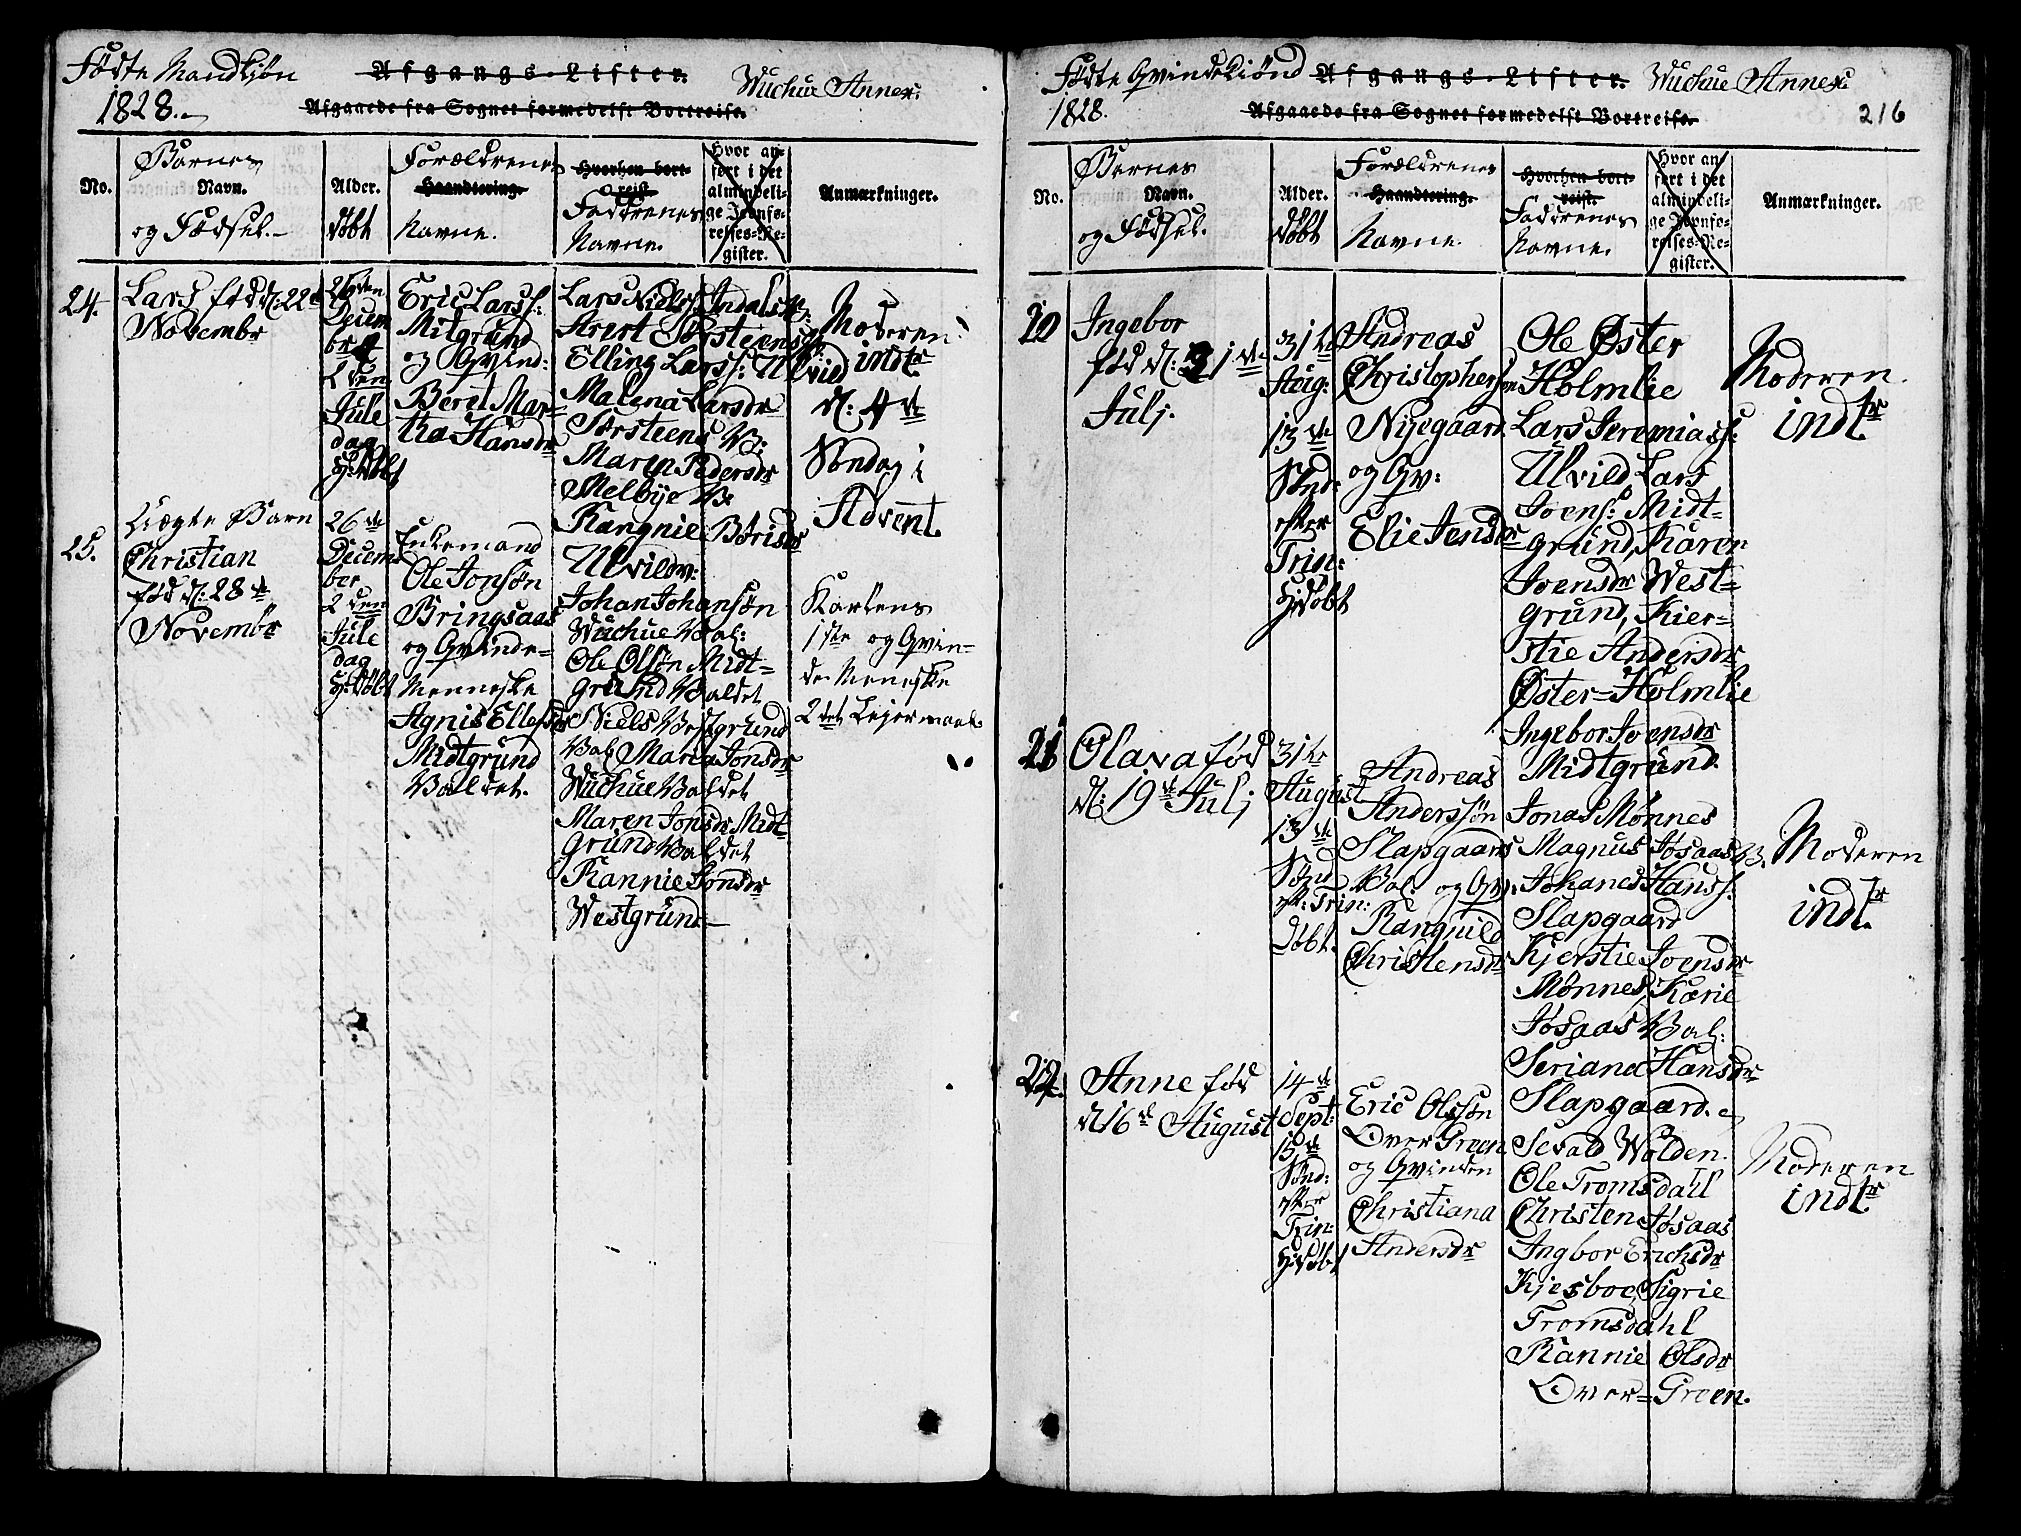 Fødte Mandkjøn
1828.
Afgangs-Lister.
Wuchue Annex:
Afgaaede fra Sognet formedelst Bortreise.
No.
Barnes
Navn.
og Fødsel.
Alder.
døbt
Forældrenes
Haandtering.
Navne.
Hvorhen bort-
reist.
Faddrenes
Navne.
Hvor an-
ført i det
almindeli-
ge Jevnfø-
relses-Re-
gister.
Anmærkninger.
24.
Lars fød d: 22d
Novembr
26den
Decem
br
2den
Jule
dag
Hj: døbt
Eric Larss:
Mitgrund
og Qvind:
Beret Mar-
tha Hansdr
Lars Nielss: Indals
Arent Torsteens:
Elling Larss: Ulvild
Malena Larsdr
Torsteens V:
Maren Pedersdr
Melbye V:
Rangnie Börisdr
Ulvild
Moderen
indtr
d: 4de
Søndag i
Advent
25.
Uægte Barn
Christian
fød d: 28de
Novembr
26de
Decem
ber
2den
Jule
dag
Hj: døbt
Enkemand
Ole Jonsøn
Bringsaas
og Qvinde-
Menneske
Agnis Ellefsdr
Midtgrund
Valdet.
Johan Johansøn
Wuchue Val:
Ole Olsøn Midt-
grund Valdet
Niels Vestgrund
Val Maria Jonsdr
Wuchue Valdet
Maren Jonsdr Midt
grund Valdet
Rannie Jonsdr
Westgrund
Karlens
1ste og Qvin-
de Meneske
2det Lejermaal.
Fødte Qvindekiønd
1828.
Afgangs-Lister.
Wuchue Annex
Afgaaede fra Sognet formedelst Bortreise.
216
No.
Bernes
Navn.
og Fødsel.
Alder.
døbt
Forældrenes
Haandtering.
Navne.
Hvorhen bort-
reist.
Faddrenes
Navne.
Hvor an
ført i det
almindeli-
ge Jevnfø-
relses-Re-
gister.
Anmærkninger.
Ingebor
fød d: 21de
Julj.
31te
Aug:
13de
Sønd:
efter
Trin:
Hj døbt
Andreas
Christophersøn
Nyegaard
og Qv:
Elie Jensdr
Ole Øster
Holmlie
Lars Jeremiass:
Ulvild Lars
Joens: Midt-
grund, Karen
Joensdr West-
grund, Kier-
stie Andersdr
Øster-Holmlie
Ingebor Joensdr
Midtgrund.
Moderen
indtr
21
Olava fød
d: 19de Julj
31te
August
13de
Sønd
eft: Trin:
døbt.
Andreas
Anderssøn
Slapgaards
Val og Qv:
Rangnild
Christensdr
Jonas Mønnes
Magnus Jøsaas V,
Johanes Hanss:
Slapgaard
Kjerstie Joensdr
Mønnes, Karie
Jøsaas Val:
Seriana Hansdr
Slapgaard.
Moderen
indtr
22.
Anne fød
d 16de August
14de
Sept:
15de
Sønd:
efter
Trin:
Hj: døbt
Eric Olssøn
Over Green
og Qvinden
Christiana
Andersdr
Sevald Wolden.
Ole Tromsdahl
Christen Jøsaas
Ingbor Erichsdr
Kjesboe, Sigrie
Tromsdahl
Rannie Olsdr
Over-Green.
Moderen
indtr